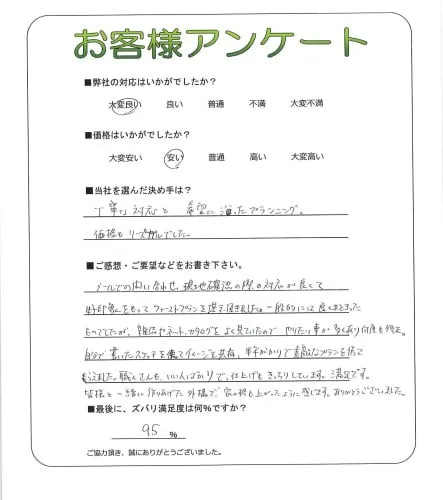 お客様アンケート
■弊社の対応はいかがでしたか？
大変良い 良い 普通 不満 大変不満
■価格はいかがでしたか？
大変安い 安い 普通 高い 大変高い
■当社を選んだ決め手は？
丁寧な対応と 希望に沿ったプランニング。
価格もリーズナブルでした。
■ご感想・ご要望などをお書き下さい。
メールでの問い合わせ、現地確認の際の対応が良くて
好印象をもってファーストプランを
一般的には良くまとまった
ものでしたが、雑誌やネット、カタログをよく見ていたので やりたい事が多くあり何度も修正。
自分で書いたスケッチを 共有、半年がかりで素敵なプランを
もらえました。職人さんも、いい人ばかりで、仕上げもきっちりしています。満足です。
皆様と一緒に作りあげた外構で、家の格も上がったように感じます。ありがとうございました。
■最後に、ズバリ満足度は何％ですか？
95 ％
ご協力頂き、誠にありがとうございました。